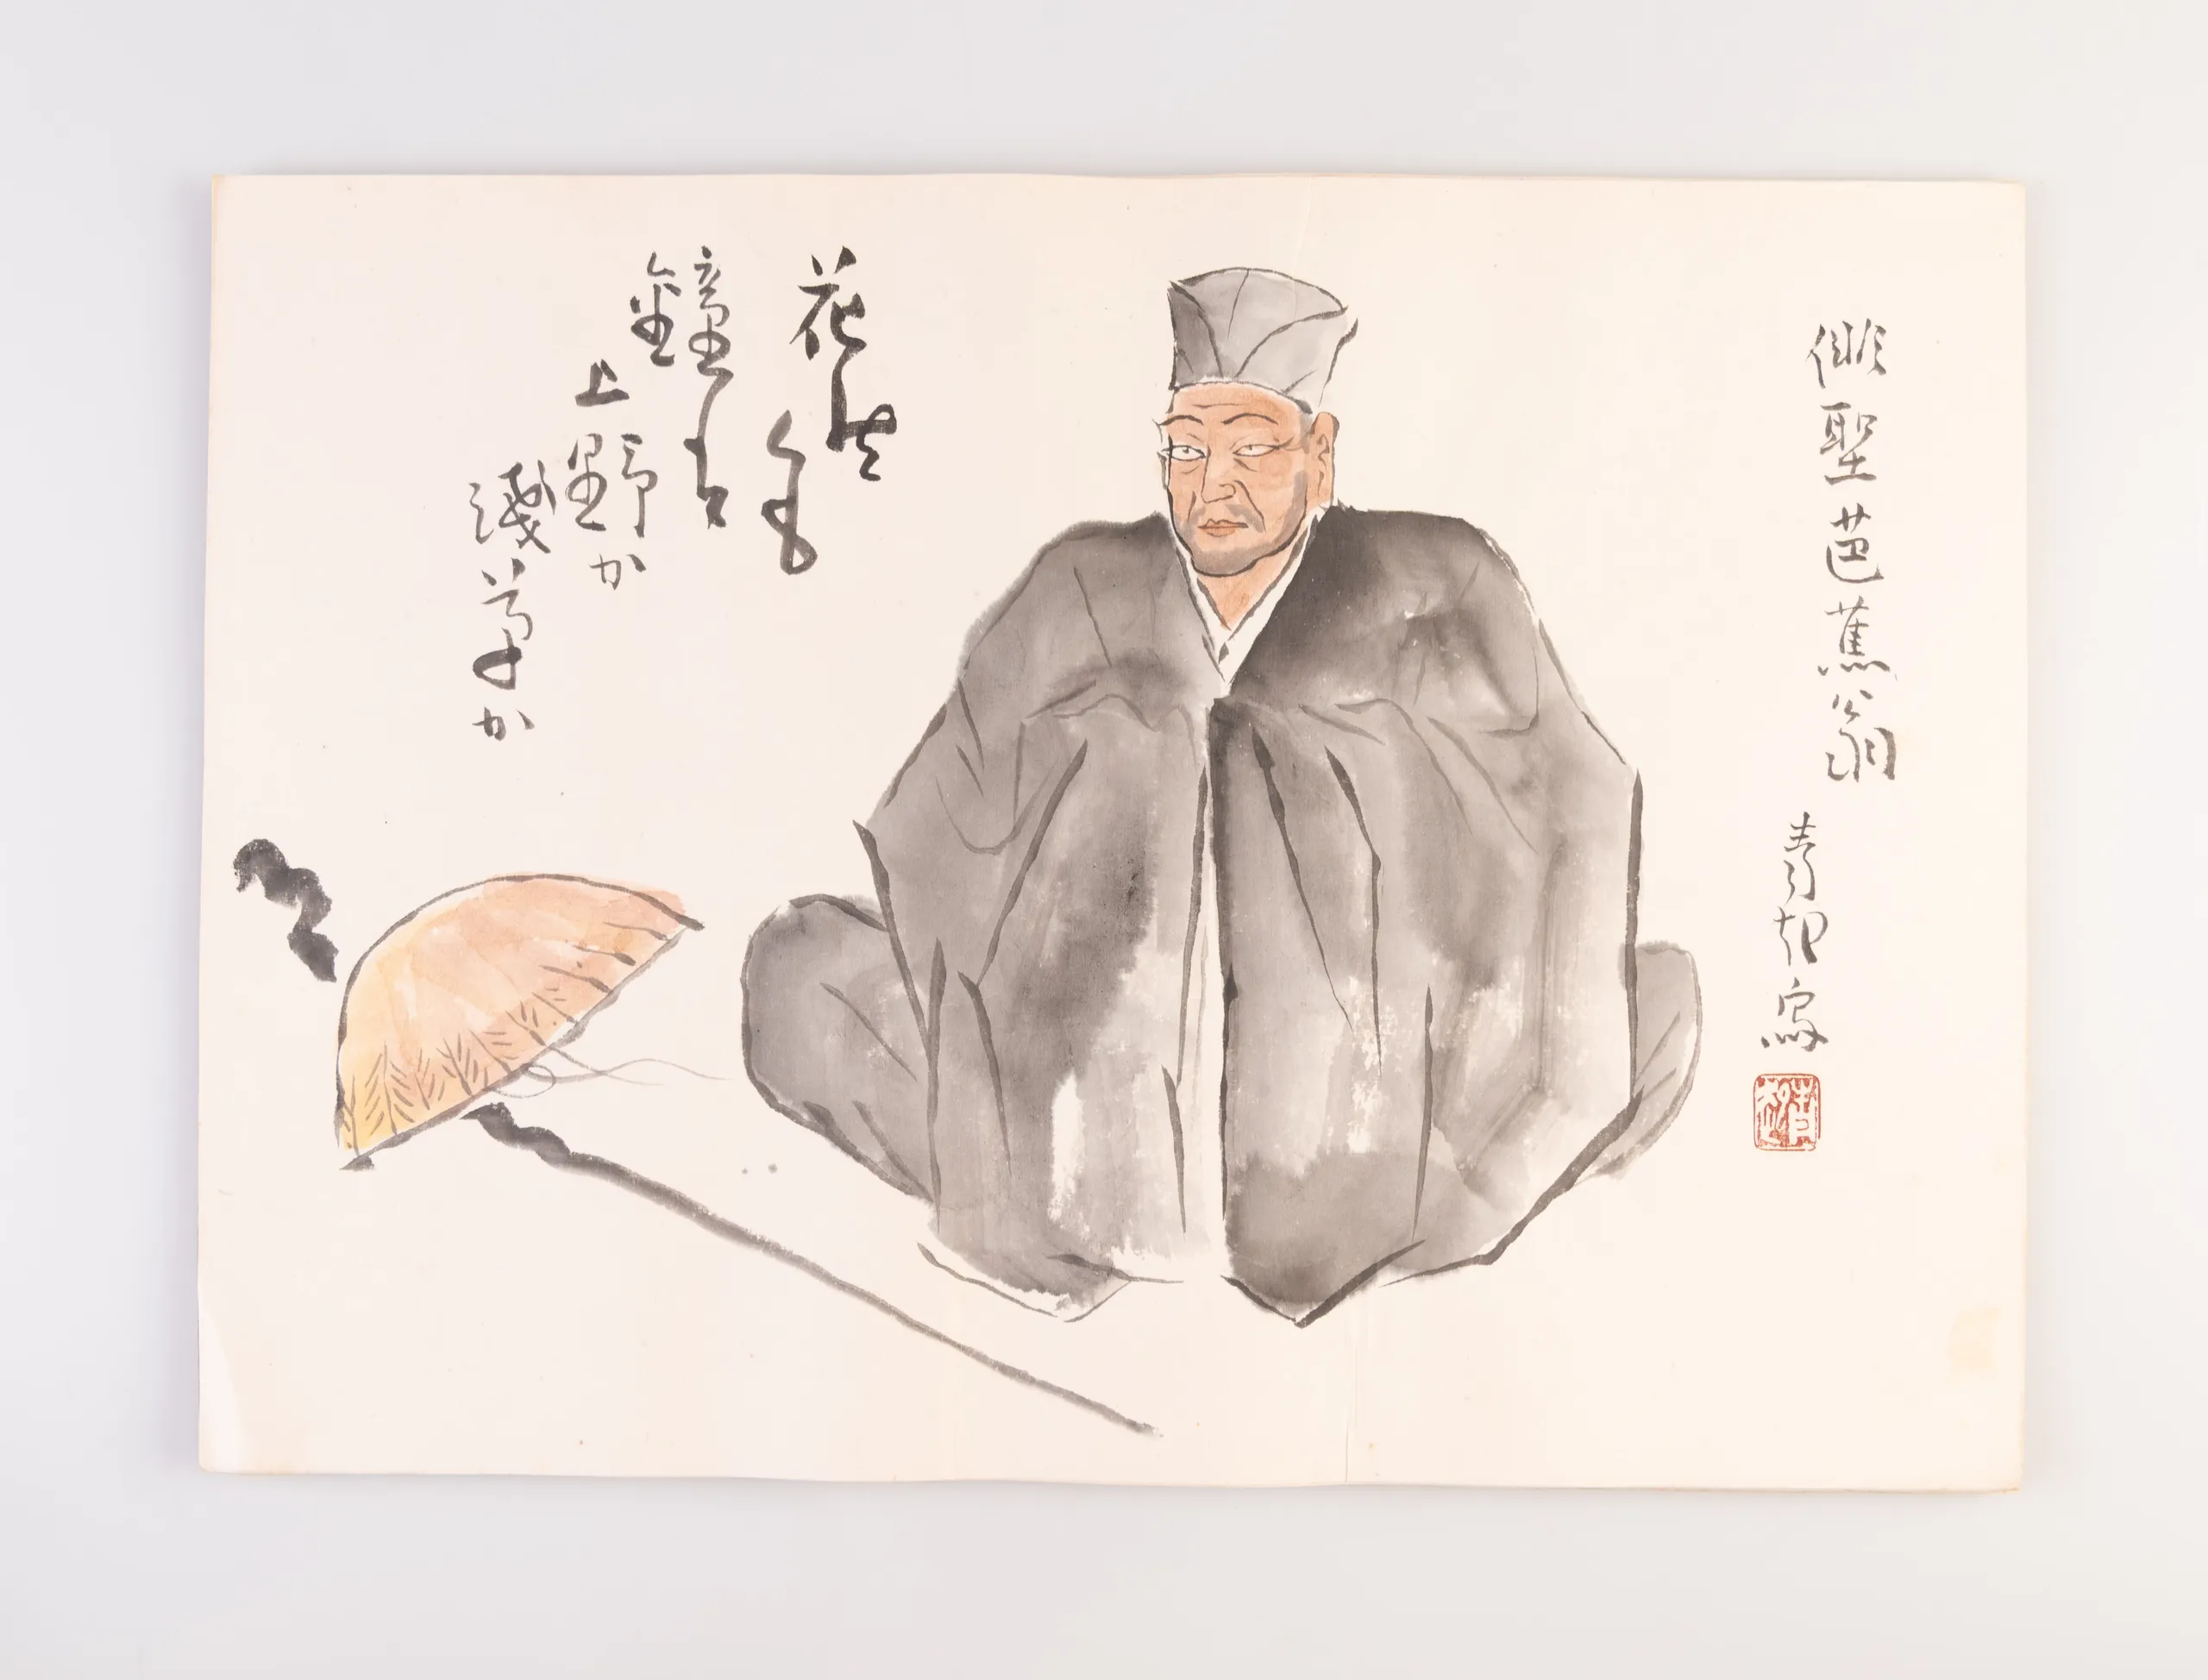 俳聖芭蕉翁
青起寫
花の
雲
鐘は
上野か
淺草か